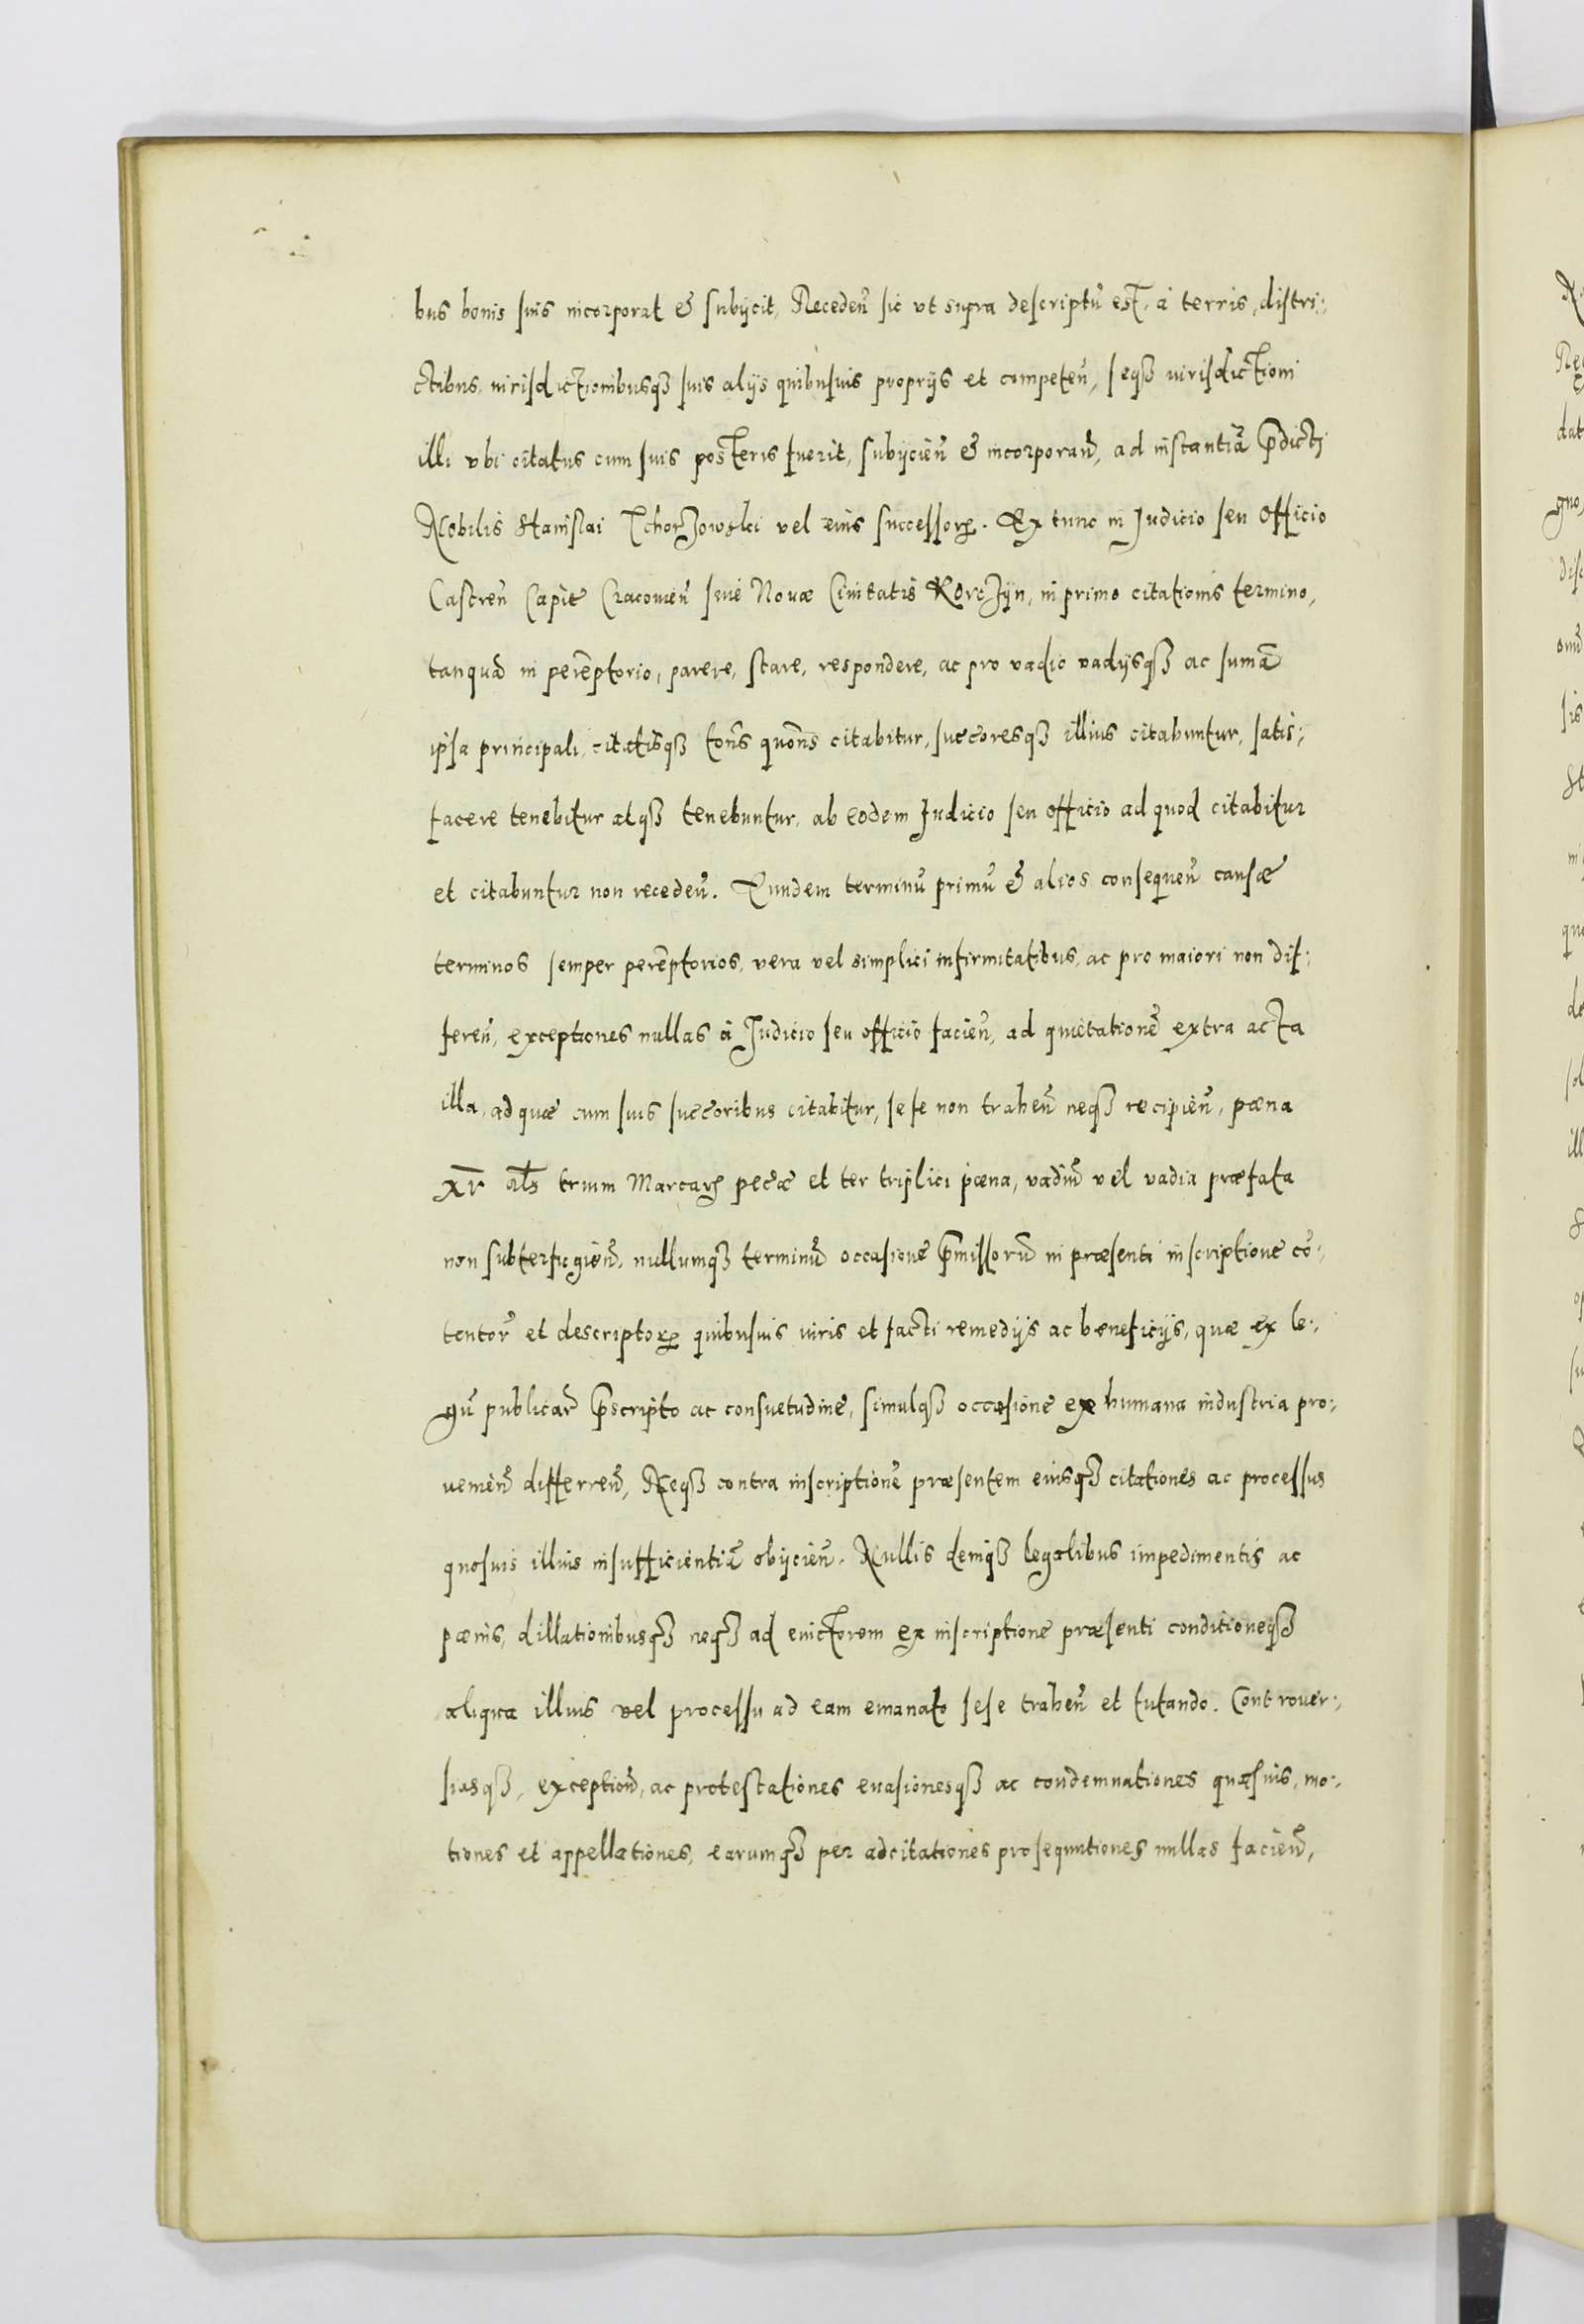 bus bonis suis incorporat & subijcit, Recedeñ sic ut supra descriptũ est, à terris, distri:
ctibus, iurisdictionibusqȝ suis alijs quibusuis proprijs et competeñ, seqȝ iurisdictioni
illi vbi citatus cum suis posteris fuerit, subijcieñ & incorporañ, ad instantiã p̃dicti
Nobilis Stanislai Tchorzowski vel eius successorꝝ. Ex tunc in Judicio seu Officio
Castreñ Capit̃ Cracouieñ siue Nouæ Ciuitatis Korczÿn, in primo citationis termino,
tanquã in perẽptorio, parere, stare, respondere, ac pro vadio vadijsqȝ ac sum̃a
ipsa principali, citatisqȝ tot̃s quot̃s citabitur, succ̃oresqȝ illius citabuntur, satis:
facere tenebitur atqȝ tenebuntur, ab eodem Judicio seu officio ad quod citabitur
et citabuntur non recedeñ. Eundem terminũ primũ & alios consequeñ causæ
terminos semper perẽptorios, vera vel simplici infirmitatibus, ac pro maiori non dif:
fereñ, exceptiones nullas à Judicio seu officio facieñ, ad quietationẽ extra acta
illa, ad quæ cum suis succ̃oribus citabitur, sese non traheñ neqȝ recipieñ, pœna
xv al̃s trium Marcarꝝ pec̃æ et ter triplici pœna, vadiũ vel vadia præfata
non subterfugieñ, nullumqȝ terminũ occasione p̃missorũ in præsenti inscriptione cõ:
tentor̃ et descriptorꝝ quibusuis iuris et facti remedijs ac beneficijs, quæ ex le:
gũ publicar̃ p̃scripto ac consuetudine, simulqȝ occasione ex humana industria pro:
uenieñ differreñ, Neqȝ contra inscriptionẽ præsentem eiusqȝ citationes ac processus
quosuis illius insufficientiã obijcieñ. Nullis deniqȝ legalibus impedimentis ac
pœnis, dillationibusqȝ neqȝ ad euictorem ex inscriptione præsenti conditioneqȝ
aliqua illius vel processu ad eam emanato sese traheñ et tutando. Controuer:
siasqȝ, exceptioñ, ac protestationes euasionesqȝ ac condemnationes quæsuis, mo:
tiones et appellationes, earumqȝ per adcitationes prosequutiones nullas facieñ,